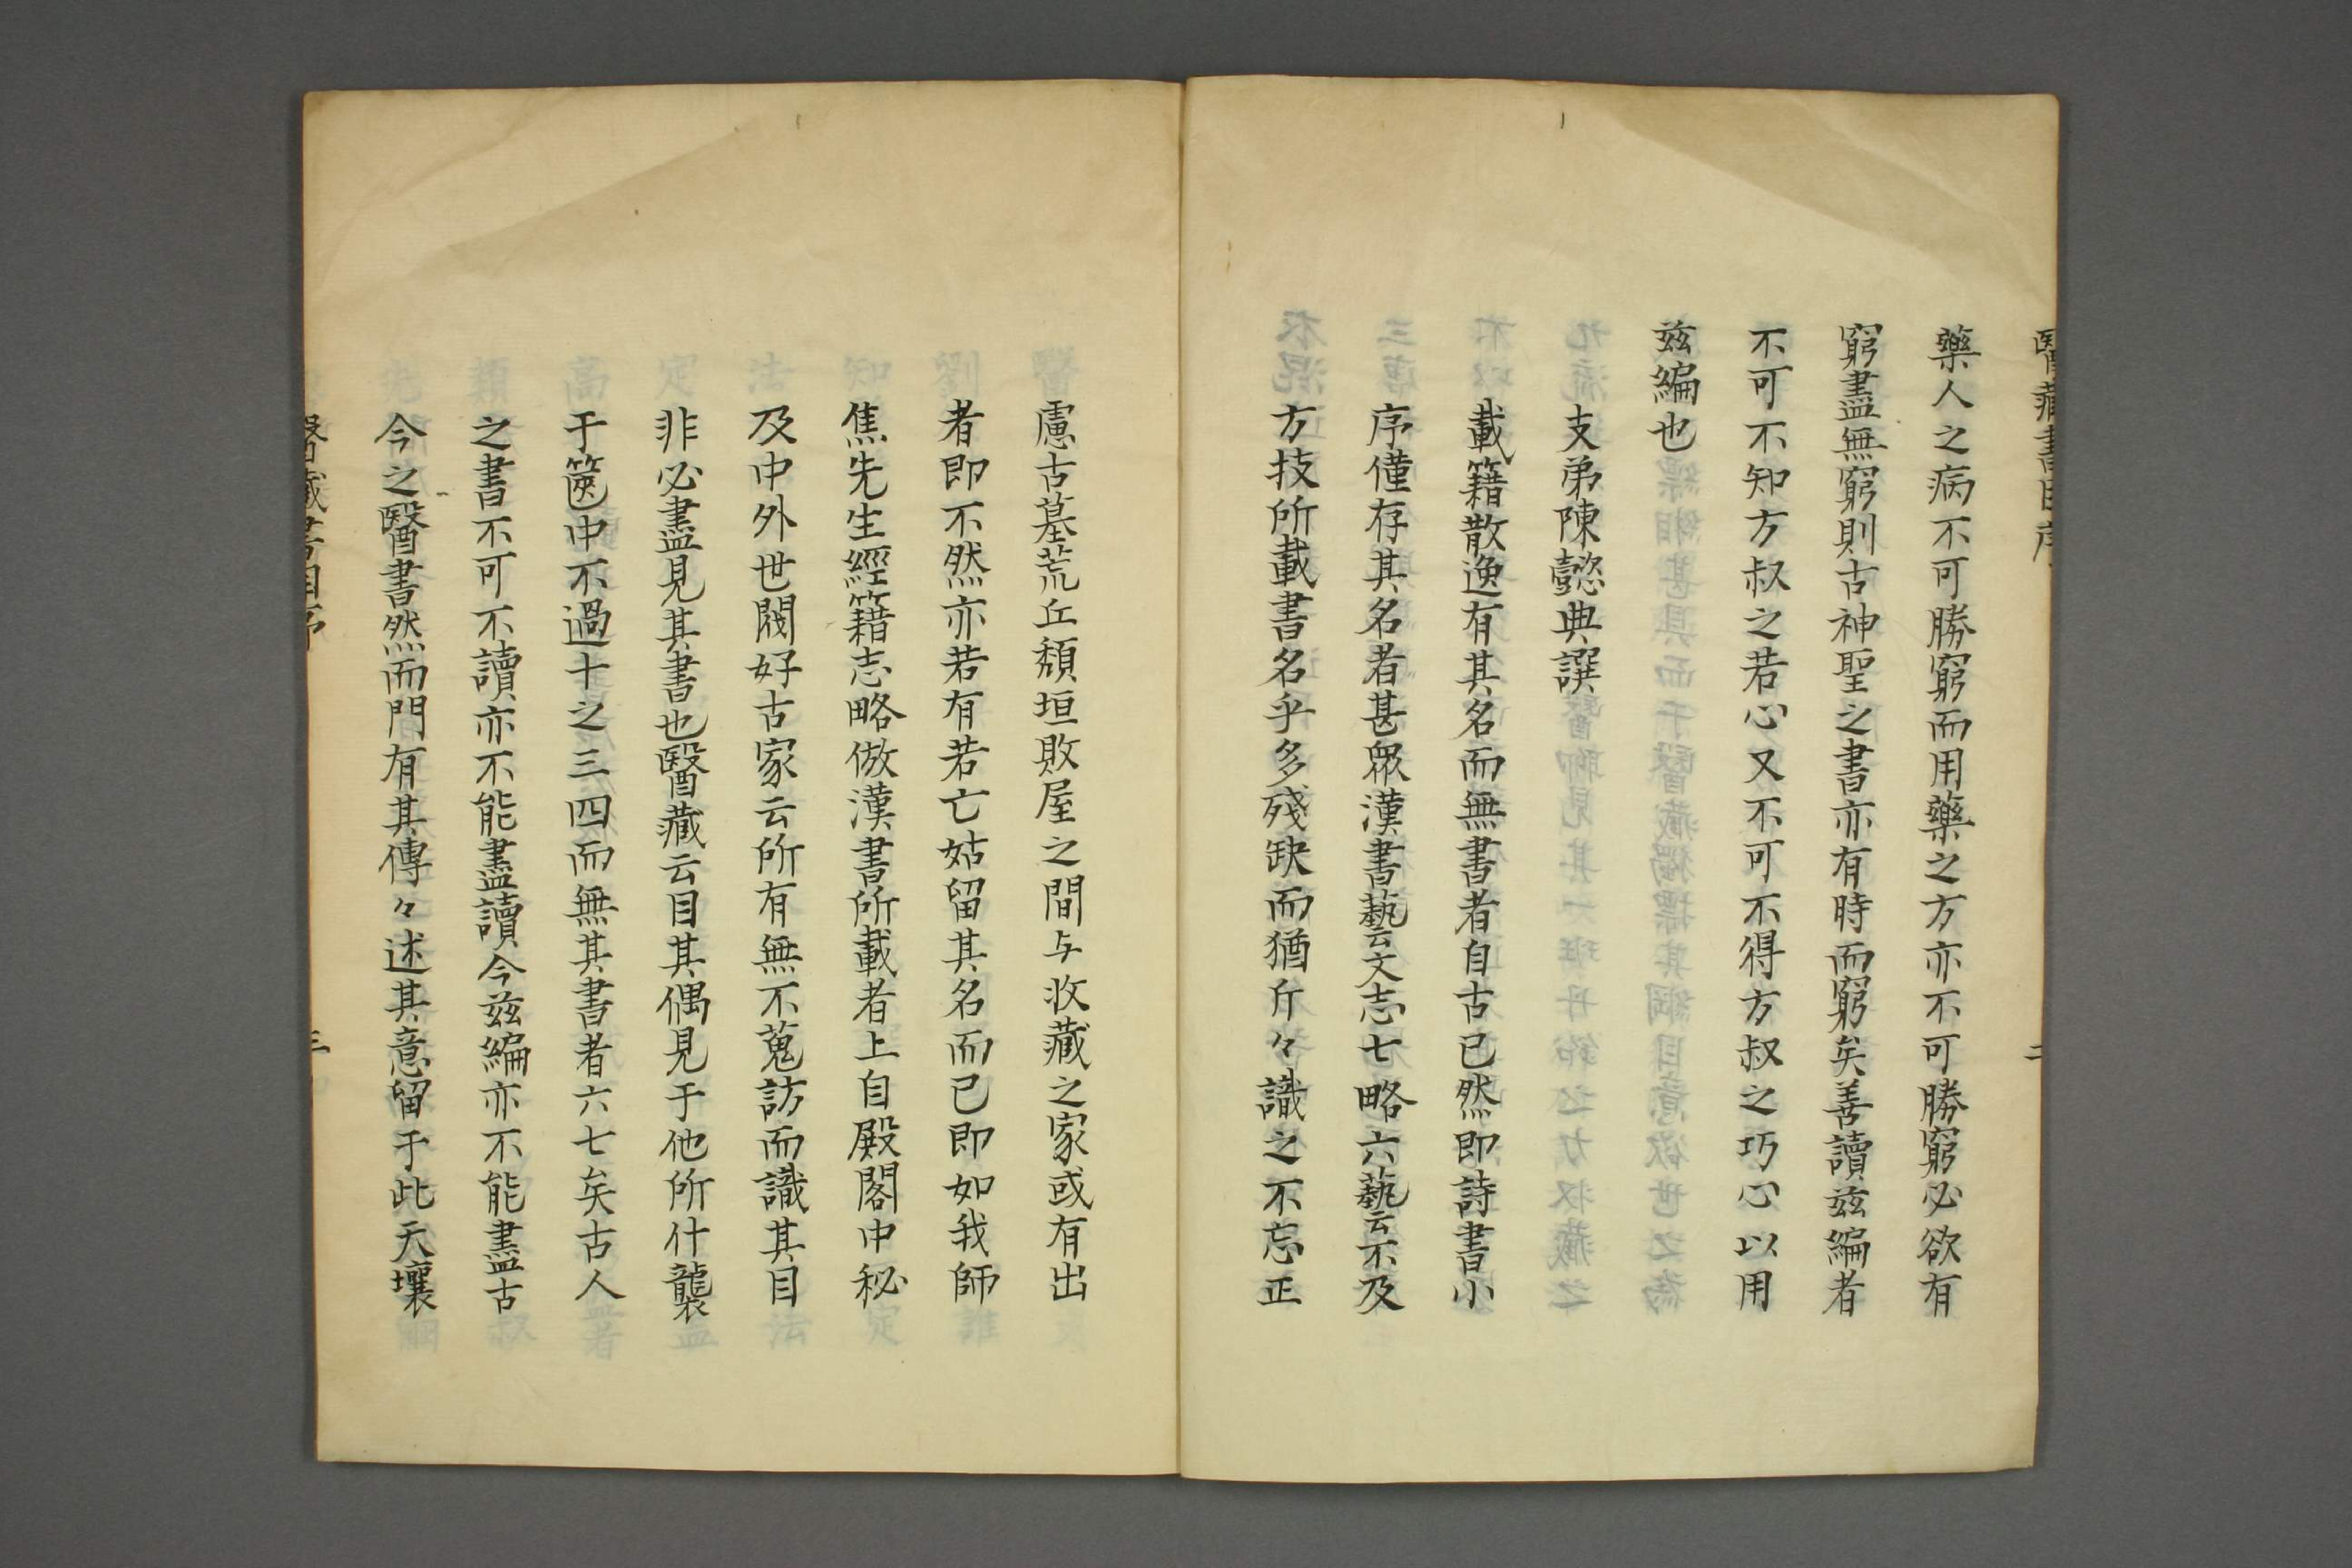 醫藏書目序
二
藥人之病不可勝窮而用藥之方亦不可勝窮必欲有
窮盡無窮則古神聖之書亦有時而窮矣善讀茲編者
不可不知方叔之苦心又不可不得方叔之巧心以用
茲編也
支弟陳懿典譔
載籍散逸有其名而無書者自古已然即詩書小
序僅存其名者甚眾漢書藝文志七略六藝云不及
方技所載書名乎多殘缺而猶斤々識之不忘正
慮古墓荒丘頹垣敗屋之間与收藏之家或有出
者即不然亦若有若亡姑留其名而已即如我師
焦先生經籍志略倣漢書所載者上自殿閣中秘
及中外世閥好古家云所有無不蒐訪而識其目
非必盡見其書也醫藏云目其偶見于他所什襲
于篋中不過十之三四而無其書者六七矣古人
之書不可不讀亦不能盡讀今茲編亦不能盡古
今之醫書然而門有其傳々述其意留于此天壤
醫藏書目序
三